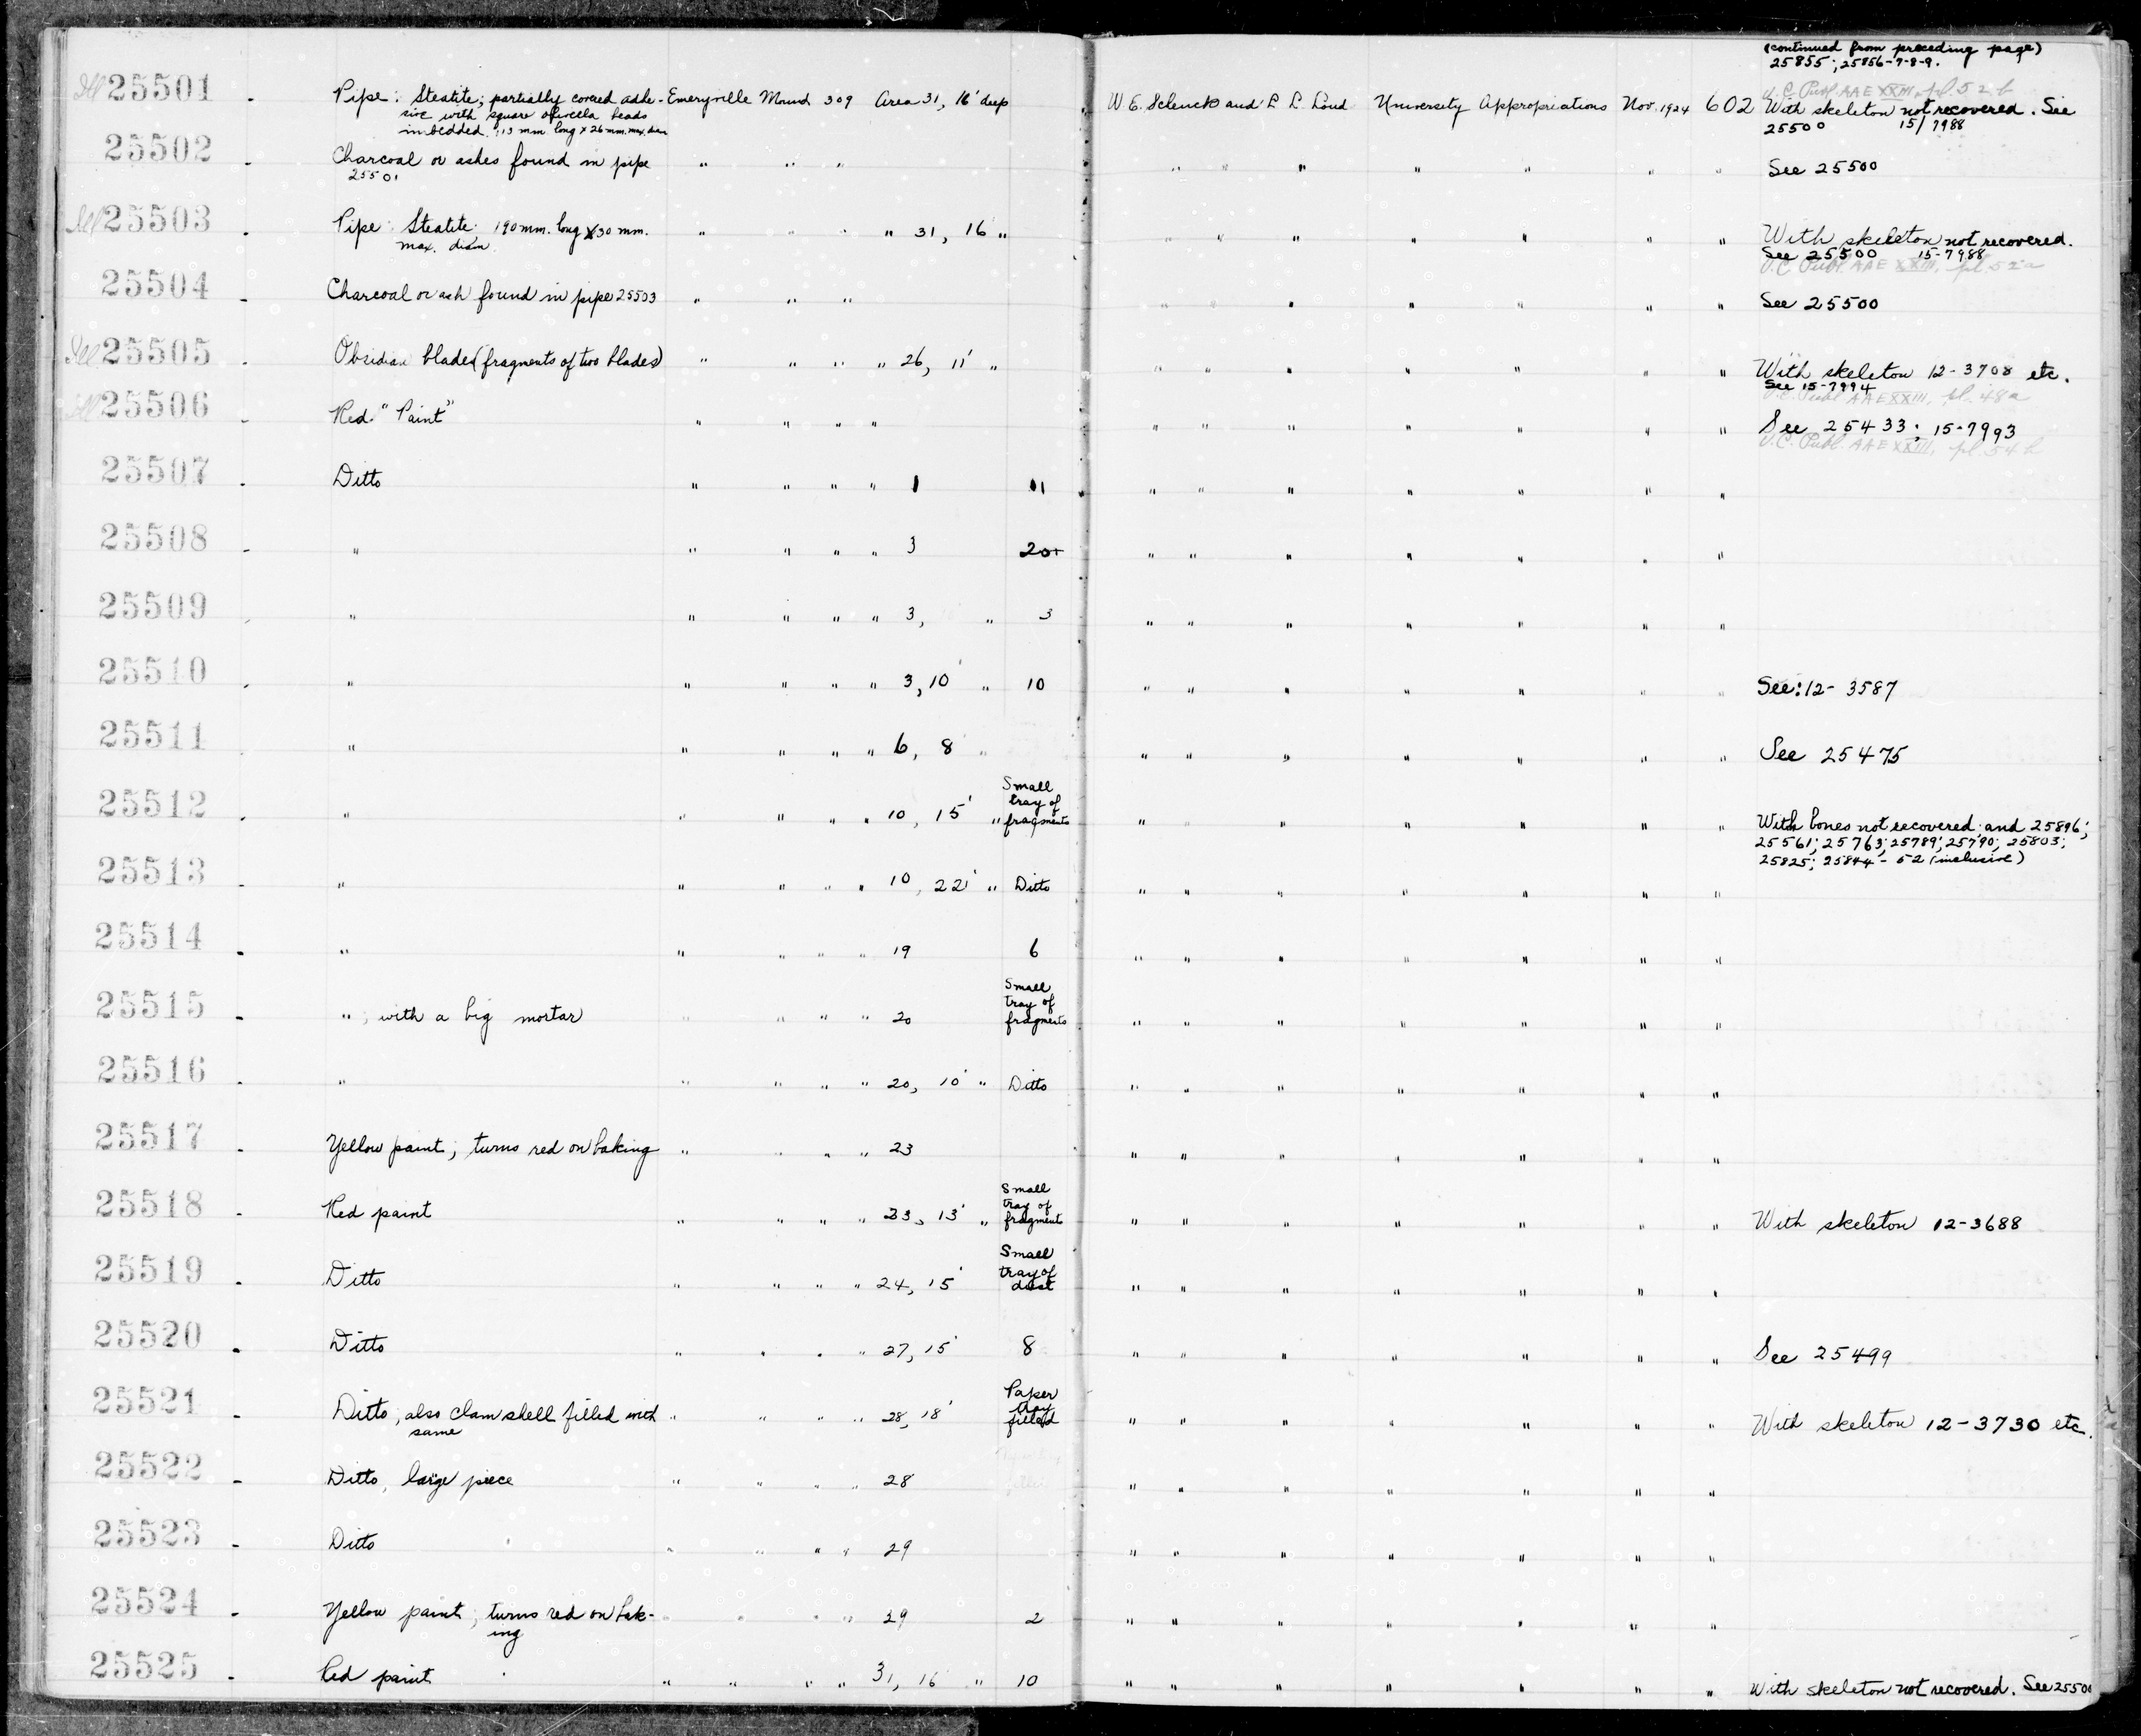 (continued from preceding page)
25855; 25856-7-8-9.
Ill 25501 - Pipe: Steatite; partially covered adhe- Emeryville Mound 309 Area 31, 16' deep W. E. Schenck and L. L. Loud University Appropriations Nov. 1924 602 With skeleton not recovered. See
U.C. Publ. AAE XXIII, pl. 52 b
sive with square olivella beads
imbedded. 113 mm. long x 26 mm. max. diam
25500 15/7988
25502 - Charcoal or ashes found in pipe " " " " " " " " " " See 25500
25501
Ill 25503 - Pipe: Steatite: 190 mm. long x 30 mm. " " " " 31, 16 " " " " " " " " With skeleton not recovered.
max. diam
See 25500 15-7988
U.C. Publ. AAE XXIII, pl. 52 a
25504 - Charcoal or ash found in pipe 25503 " " " " " " " " " " See 25500
Ill 25505 - Obsidian blades (fragments of two blades) " " " " 26, 11' " " " " " " " " With skeleton 12-3708 etc.
See 15-7994
U.C. Publ. AAE XXIII, pl. 48a
Ill 25506 - Red "Paint" " " " " " " " " " " " See 25433; 15-7993
U.C. Publ. AAE XXIII, pl. 54 b
25507 - Ditto " " " " 1 11 " " " " " " "
25508 - " " " " " 3 20+ " " " " " " "
25509 - " " " " " 3, " 3 " " " " " " "
25510 - " " " " " 3, 10' " 10 " " " " " " " See: 12-3587
25511 - " " " " " 6, 8' " " " " " " " " See 25475
25512 - " " " " " 10, 15' " Small
tray of
fragments " " " " " " " With bones not recovered and 25896;
25561; 25763; 25789; 25790; 25803;
25825; 25844-52 (inclusive)
25513 - " " " " " 10, 22' " Ditto " " " " " " "
25514 - " " " " " 19 6 " " " " " " "
25515 - "; with a big mortar " " " " 20 Small
tray of
fragments " " " " " " "
25516 - " " " " " 20, 10' " Ditto " " " " " " "
25517 - Yellow paint; turns red on baking " " " " 23 " " " " " " "
25518 - Red paint " " " " 23, 13' " Small
tray of
fragments " " " " " " " With skeleton 12-3688
25519 - Ditto " " " " 24, 15' Small
tray of
dust " " " " " " "
25520 - Ditto " " " " 27, 15' 8 " " " " " " " See 25499
25521 - Ditto, also clam shell filled with " " " " 28, 18' Paper
tray
filled " " " " " " " With skeleton 12-3730 etc.
same
25522 - Ditto, large piece " " " " 28 " " " " " " "
25523 - Ditto " " " " 29 " " " " " " "
25524 - Yellow paint; turns red on bak- " " " " 29 2 " " " " " " "
ing
25525 - Red paint " " " " 31, 16 " 10 " " " " " " " With skeleton not recovered. See 25500